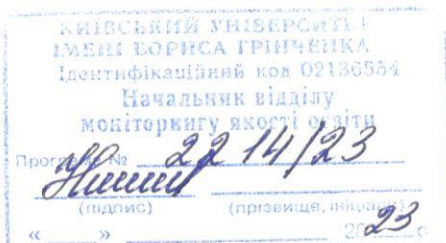 КИЇВСЬКИЙ УНІВЕРСИТЕТ
ІМЕНІ БОРИСА ГРІНЧЕНКА
Ідентифікаційний код 02136554
Начальник відділу
моніторингу якості освіти
Програма № 2214/23
(підпис) (прізвище, ініціали)
« » 2023 р